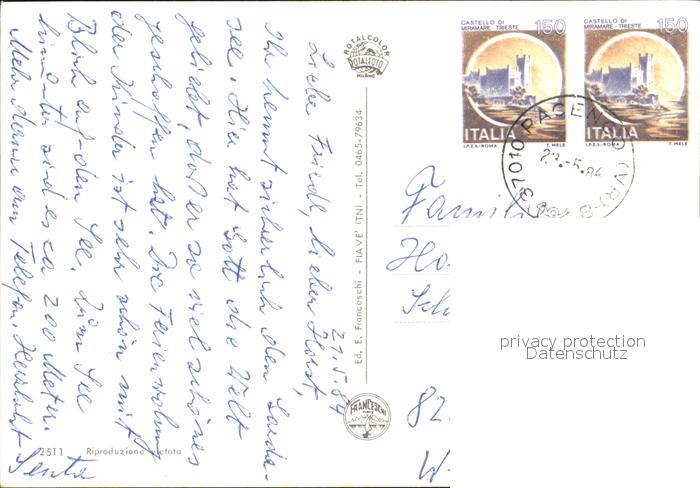 21.5.84
Liebe Friedl, lieber Horst,
Ihr kennt sicherlich den Garda-
see. Hier hat Gott die Welt
geliebt, daß er so viel schönes
geschaffen hat. Die Ferienwohnung
der Kinder ist sehr schön mit
Blick auf den See. Zum See
hinunter sind es ca 200 Metr.
Mehr dann am Telefon. Herzlichst
Senta
ROTALCOLOR
ROTALFOTO
MILANO
Ed. E. Franceschi - FIAVE' (TN) - Tel. 0465-79634
FRANCESCHI
2511 Riproduzione vietata
CASTELLO DI
MIRAMARE - TRIESTE
150
ITALIA
I.P.Z.S.-ROMA T. MELE
CASTELLO DI
MIRAMARE - TRIESTE
150
ITALIA
I.P.Z.S.-ROMA T. MELE
37010 PACEN (VR)
Famili
Ho
Sch
82
W-
privacy protection
Datenschutz